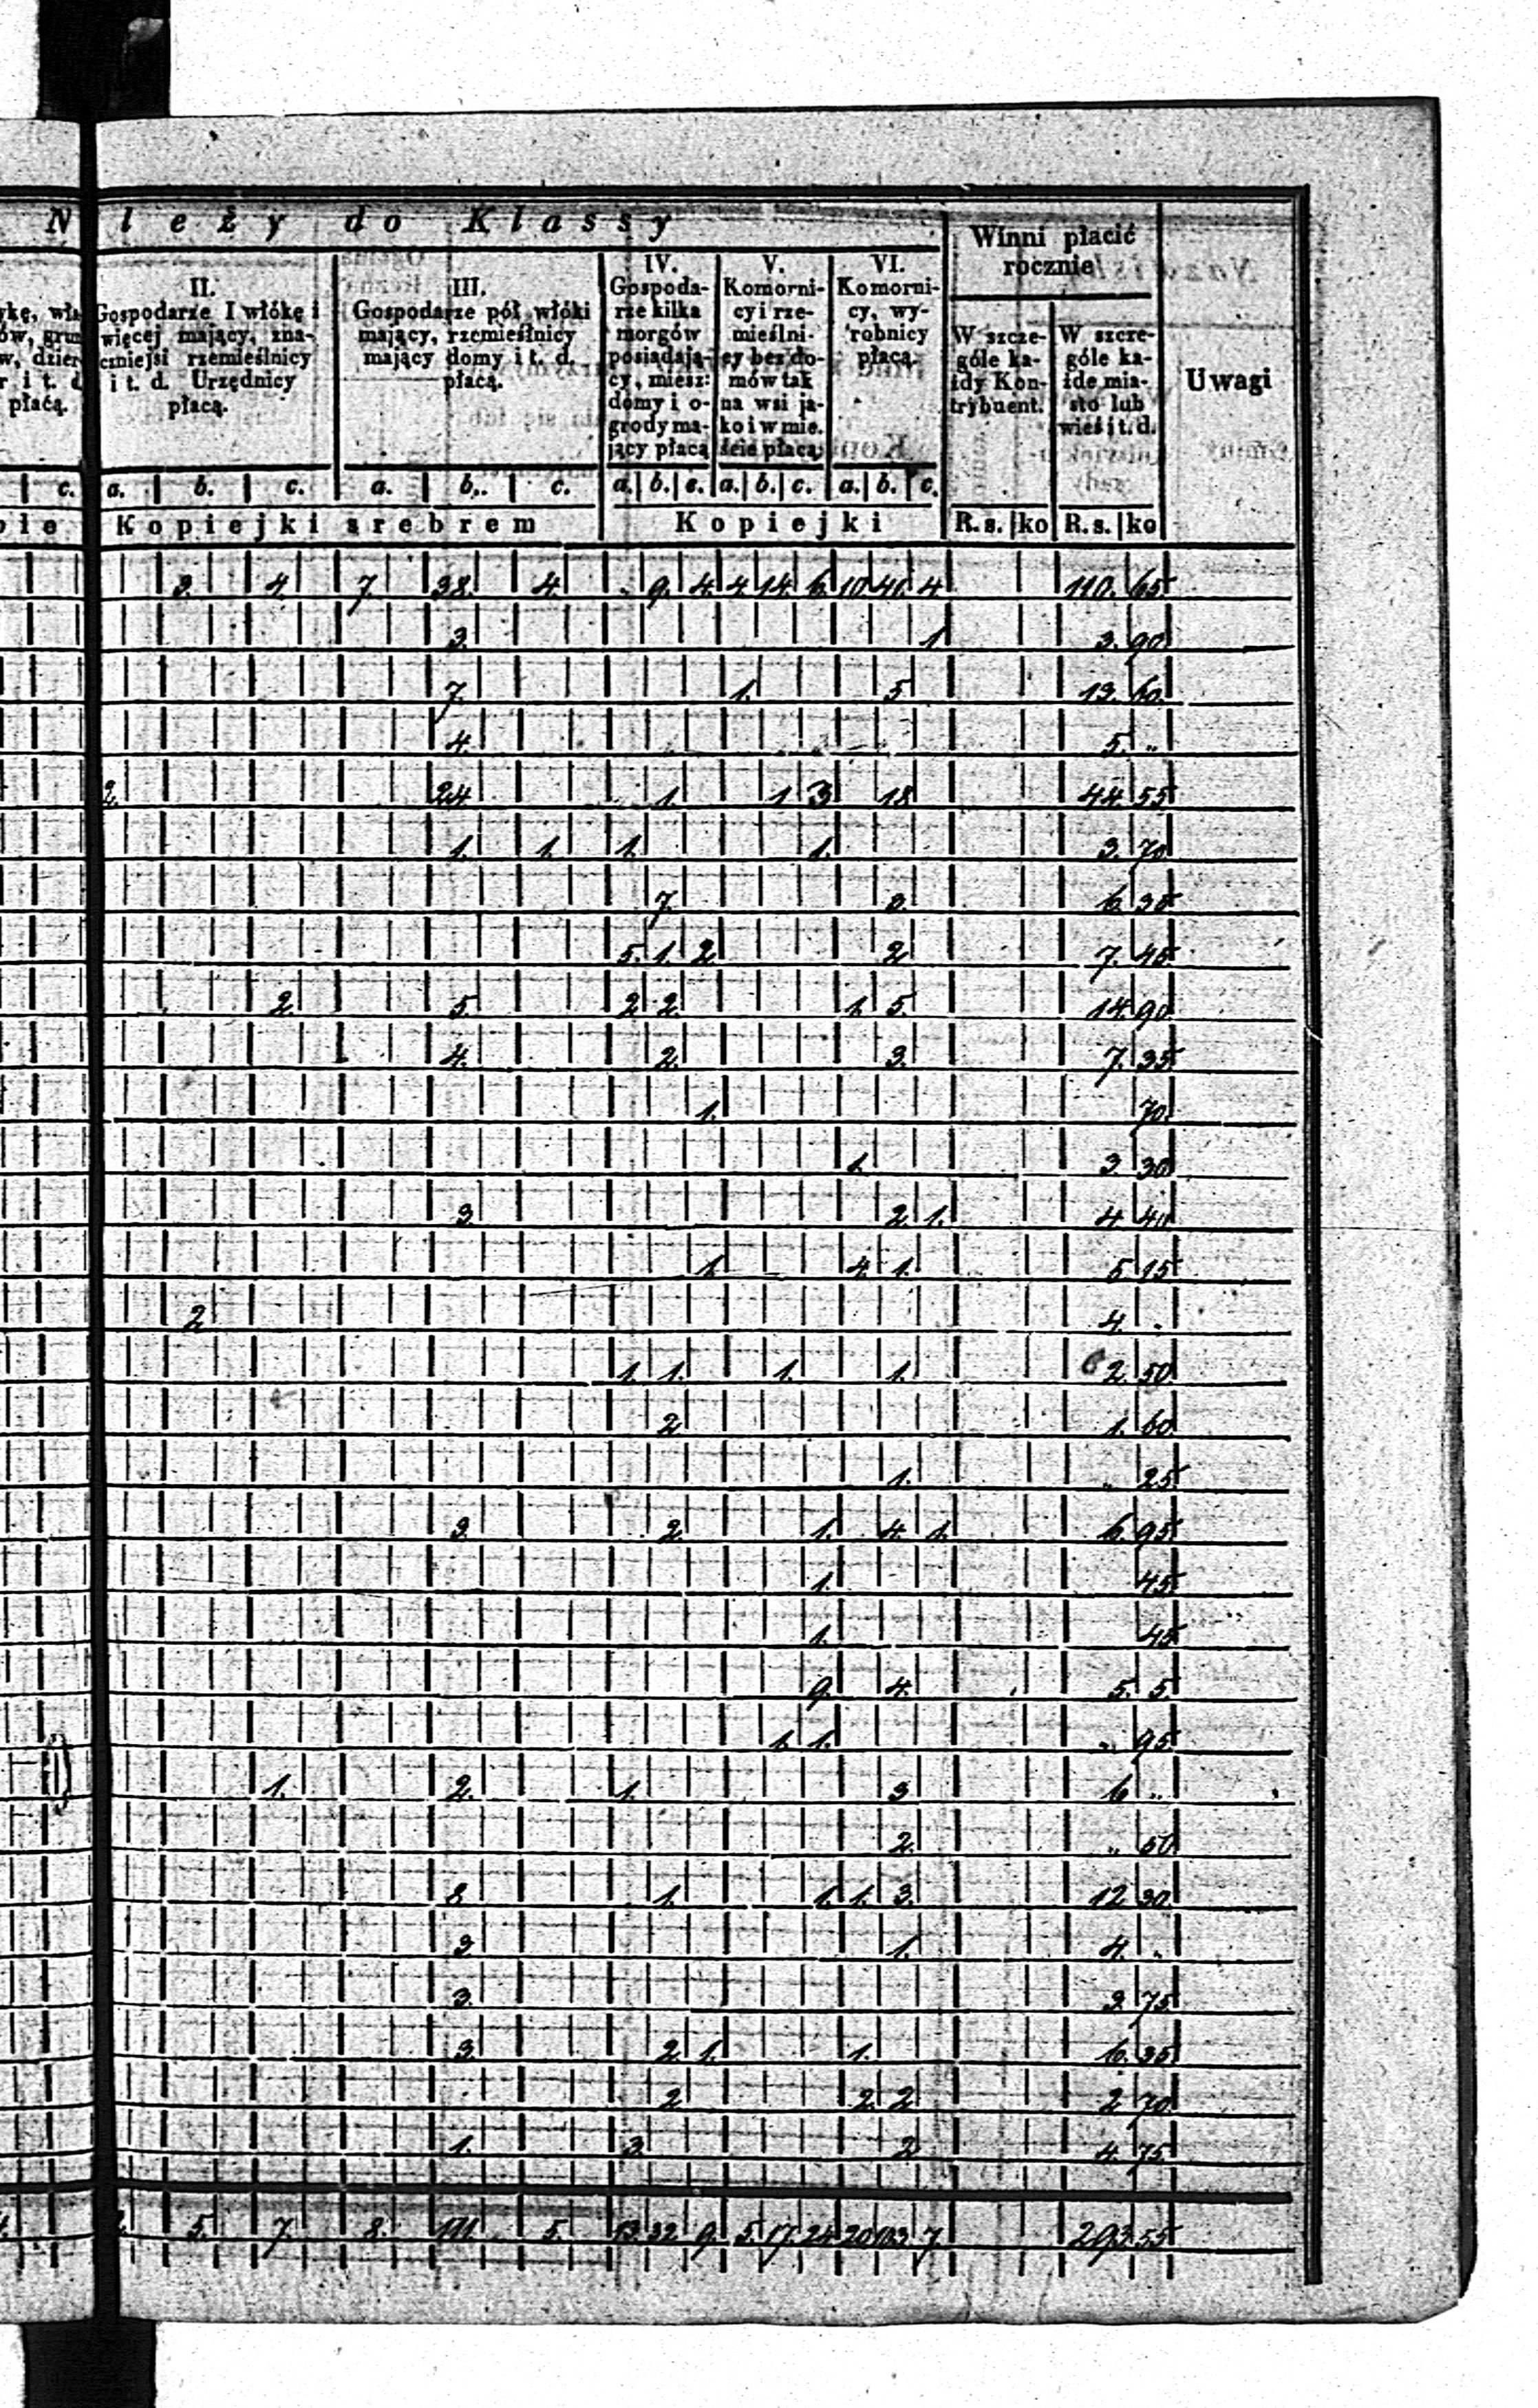 N leży do Klassy
Winni płacić
rocznie
Uwagi
II.
Gospodarze I włókę i
więcej mający, zna-
czniejsi rzemieślnicy
i t. d. Urzędnicy
płacą.
III.
Gospodarze pół włóki
mający, rzemieślnicy
mający domy i t. d.
płacą.
IV.
Gospoda-
rze kilka
morgów
posiadają-
cy, miesz:
domy i o-
grody ma-
jący płacą
V.
Komorni-
cy i rze-
mieślni-
cy bez do-
mów tak
na wsi ja-
ko i w mie.
ście płacą:
VI.
Komorni-
cy, wy-
robnicy
płacą.
W szcze-
góle ka-
żdy Kon-
trybuent.
W szcze-
góle ka-
żde mia-
sto lub
wieś i t. d.
płacą.
c. a. b. c. a. b. c. a. b. c. a. b. c. a. b. c.
Kopiejki srebrem Kopiejki R. s. ko R. s. ko
3. 4. 7. 38. 4. 9. 4. 4. 14. 6. 10. 41. 4 110. 65
3. 1 3. 90
7. 1. 5 13. 60.
4. 5. "
2 24 1. 1 3 18 44 55
1. 1. 1. 1. 3. 70
7. 6. 30
5. 1. 2 2 7. 45
2 5. 2 2. 1. 5. 14. 90
4. 2. 3. 7. 35
1. 70.
1. 3. 30
3. 2. 1. 4 40
1. 4. 1. 5 15
2 4. .
1. 1. 1. 1. 2. 50
2 1. 60
1. " 25
3. 2. 1. 4. 1. 6. 95
1. 45
1. 45
9. 4. 5. 5.
1. 1. " 95
1. 2. 1. 3 6 "
2. " 50
8. 1. 1. 1. 3. 12 30.
3 1. 4. .
3. 3. 75
3. 2. 1. 1. 6. 35
2 2. 2 2 70
1. 3. 2 4. 75
5. 7. 8. 5. 13. 22. 9. 5. 17. 24 20 103 7. 293. 55